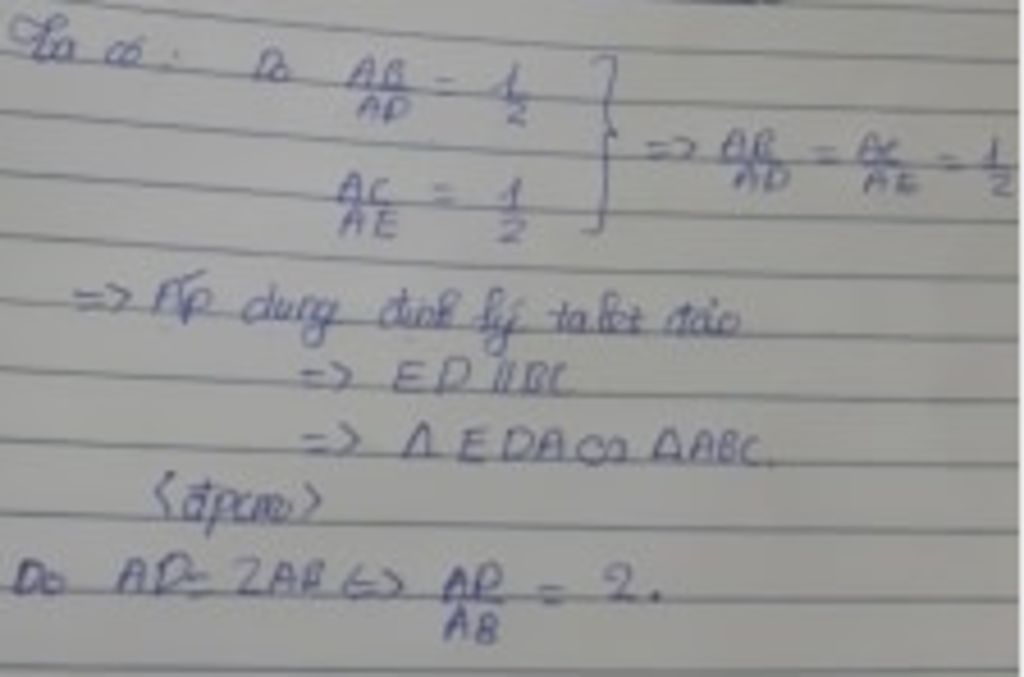 Ta có: Do AB/AD = 1/2
AC/AE = 1/2
} => AB/AD = AC/AE = 1/2
=> Áp dụng định lý talet đảo
=> ED // BC
=> Δ EDA ∽ ΔABC.
<đpcm>
Do AD = 2AB <=> AD/AB = 2.